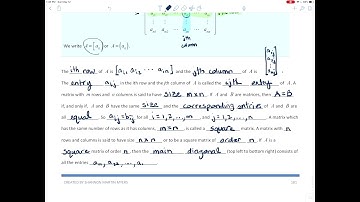 jth
column
We write A = [aij] or A = (aij).
The ith row of A is [ai1 ai2 ... ain] and the jth column of A is [a1j a2j ⋮ amj].
The entry aij, in the ith row and the jth column of A is called the ijth entry of A. A
matrix with m rows and n columns is said to have size m×n. If A and B are matrices, then A=B
if, and only if, A and B have the same size and the corresponding entries of A and B are
all equal. So aij=bij for all i=1,2,...,m and j=1,2,...,n. A matrix which
has the same number of rows as it has columns, m=n, is called a square matrix. A matrix with n
rows and n columns is said to have size n×n or to be a square matrix of order n. If A is a
square matrix of order n, then the main diagonal (top left to bottom right) consists of
all the entries a11, a22, ...,
CREATED BY SHANNON MARTIN MYERS